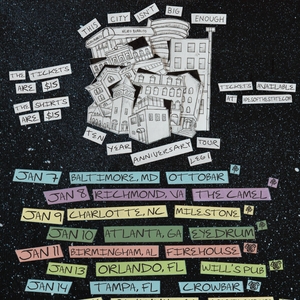 THIS CITY ISN'T BIG ENOUGH
THE TICKETS ARE $15
THE SHIRTS ARE $15
TICKETS AVAILABLE
AT
TEN YEAR ANNIVERSARY TOUR
JAN 7 BALTIMORE, MD OTTOBAR
JAN 8 RICHMOND, VA THE CAMEL
JAN 9 CHARLOTTE, NC MILESTONE
JAN 10 ATLANTA, GA EYEDRUM
JAN 11 BIRMINGHAM, AL FIREHOUSE
JAN 13 ORLANDO, FL WILL'S PUB
JAN 14 TAMPA, FL CROWBAR